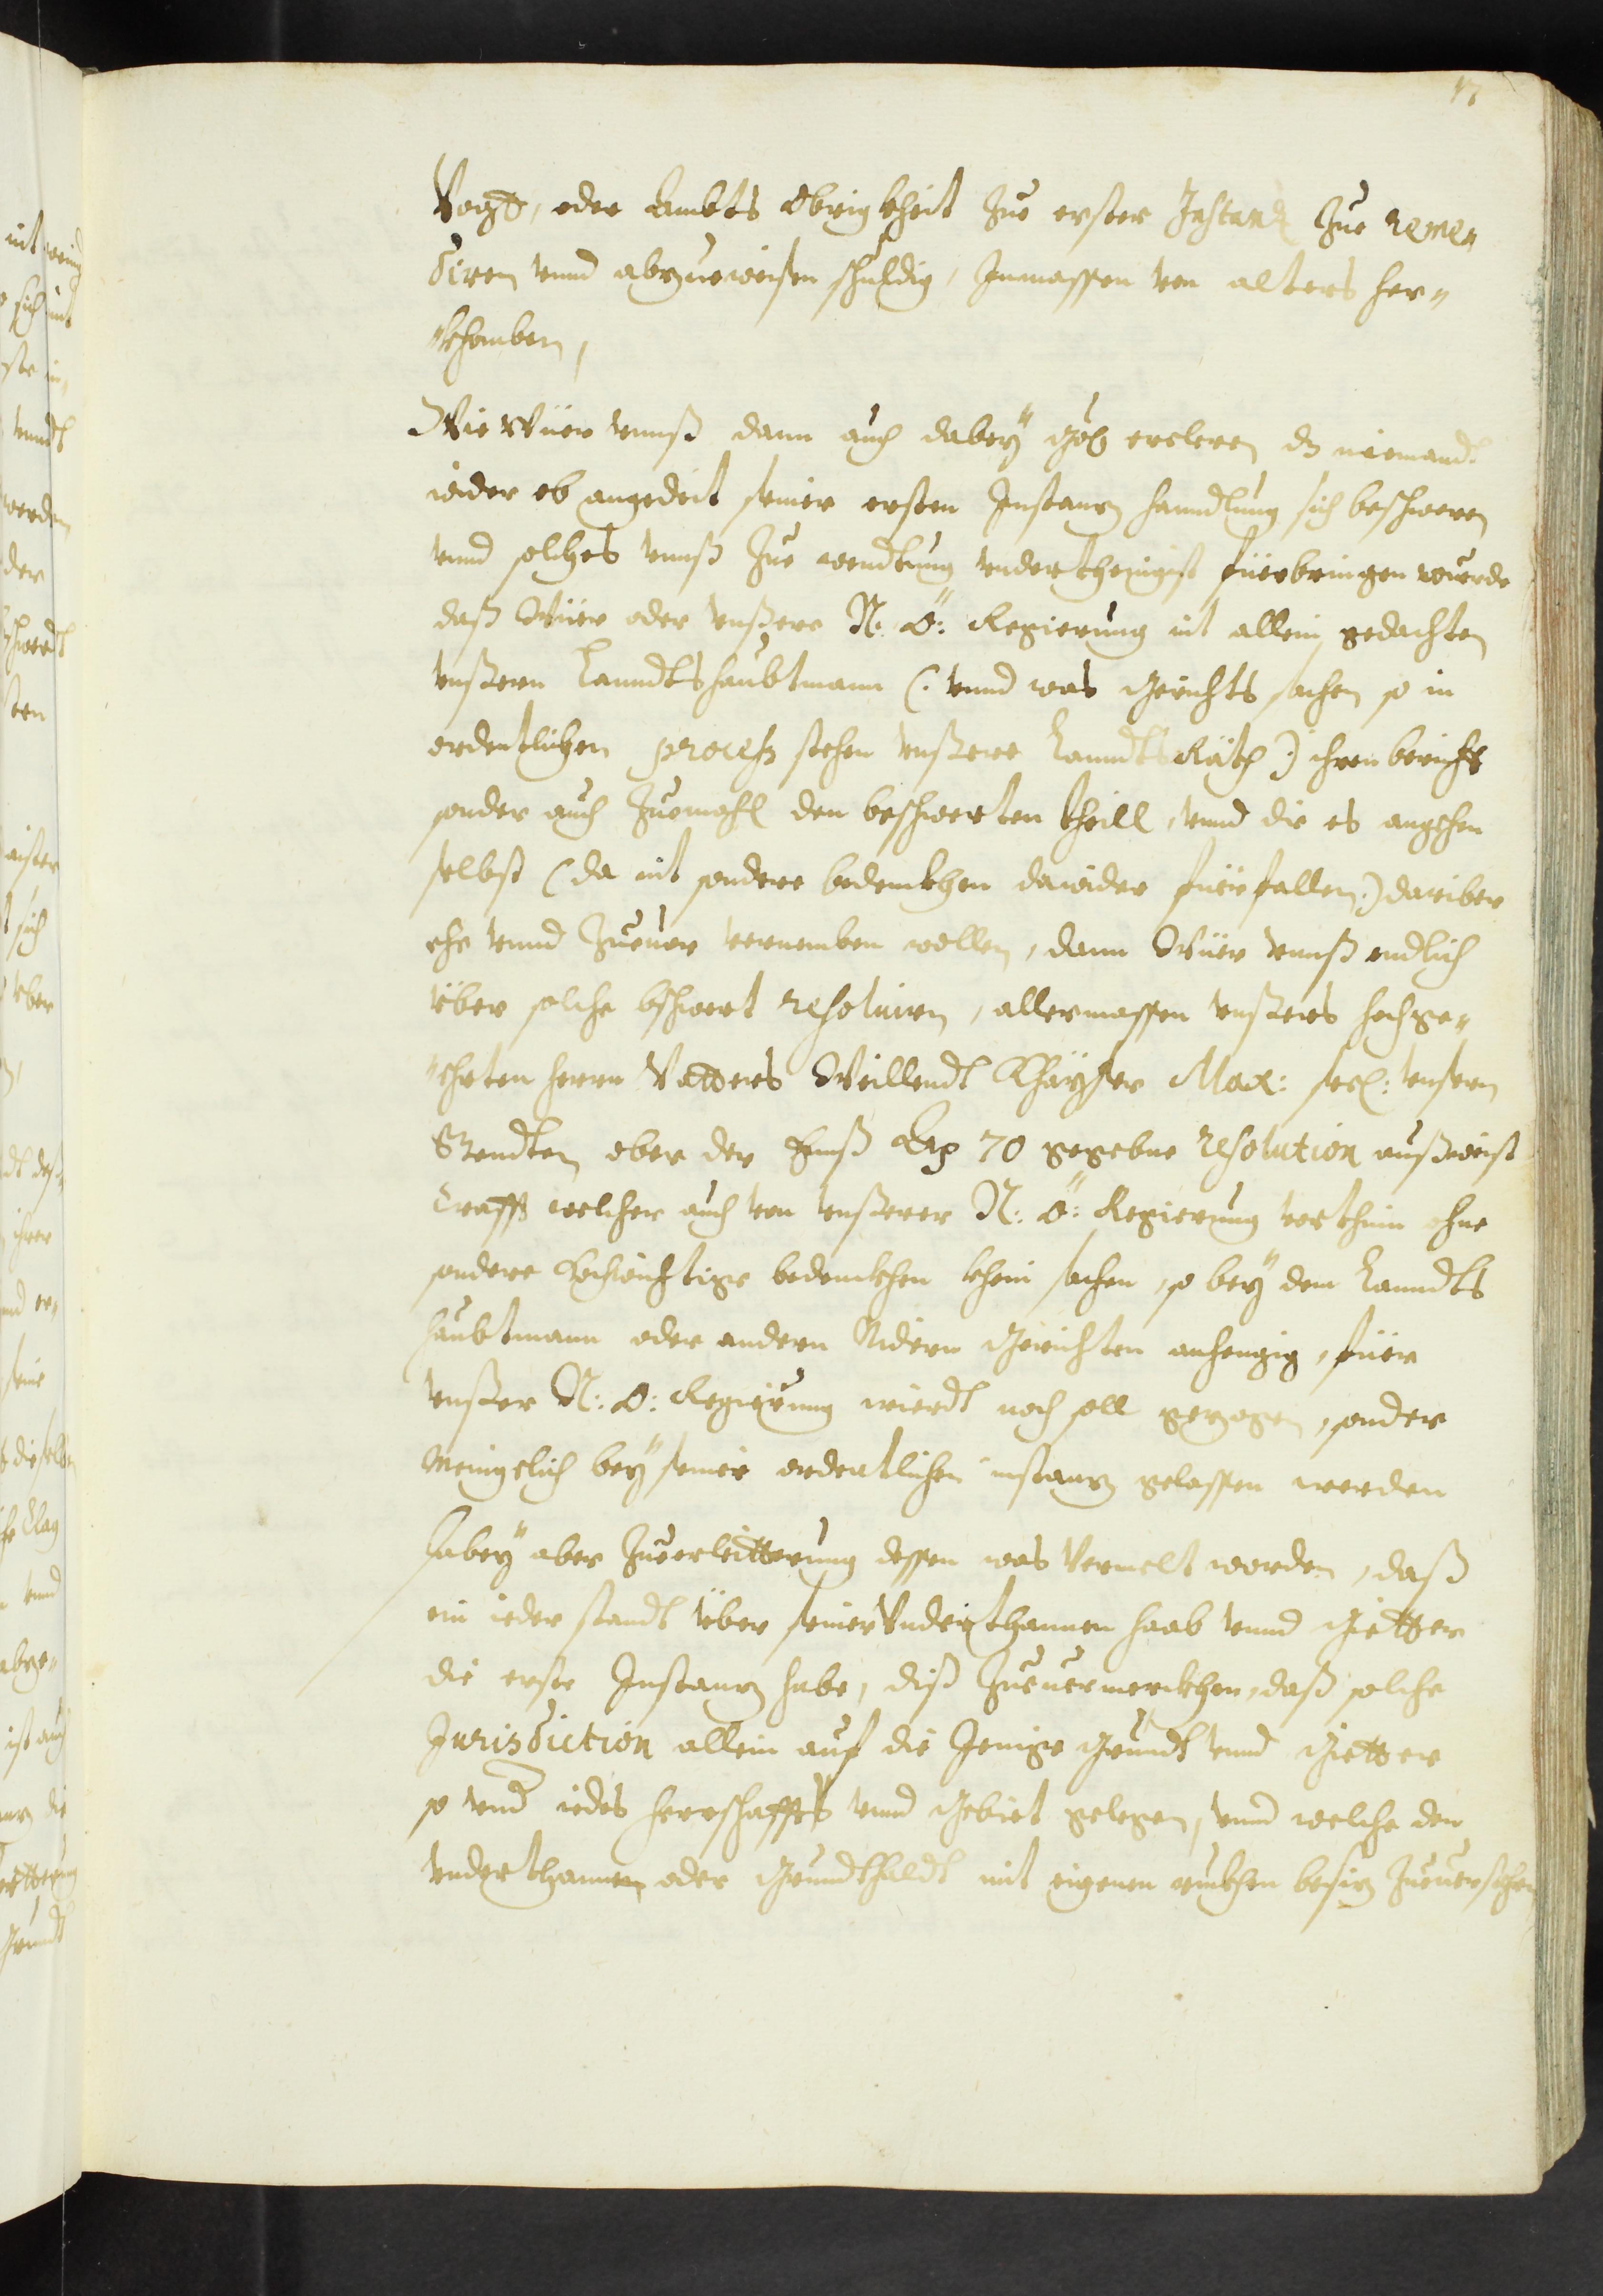 Vogtt, oder Ambts Obrigkheit Zue erster Instanz Zue reme„
diren vnnd abzueweisen schuldig, Inmassen von alters her„
„khomben,
Wie Wüer vnnß dann auch dabeÿ ercleren dz niemandt
wider ob angedeit seiner ersten Instanz hanndlung sich beschweren
vnnd solches vnnß Zue wendtung vnderthenigist füerbringen wurde
daß Wüer oder vnßere N: Ö: Regierung nit allein gedachten
vnßern Lanndtshaubtmann (: vnnd was Gerichts sachen so in
ordentlichen process stehen vnßere LanndtsRäth :) ihren bericht
sonder auch Zuemahl den beschwerten theill, vnnd die es angehen
selbst (da nit sondere bedenckhen dawider füerfallen:) dariber
ehe vnnd Zuuor vernemben wollen, dann Wüer vnnß endlich
yber solche bschwert resoluiren, allermassen vnßers hochge„
„ehrten herrn Vatters Weillendt Khaÿser Max: sel: vnsern
Stendten ober der Ennß A<sup>o</sup> 70 gegebne resolution außweist
Crafft welcher auch von vnßerer N: Ö: Regierung vorthin ohne
sondere hochwichtige bedenckhen khein sachen, so beÿ dem Lanndts
haubtmann oder andern Nidern Gerichten anhengig, füer
vnßer N: Ö: Regierung wierdt noch soll gezogen, sonder
Menigclich beÿ seiner ordentlichen instanz gelassen werden
Dabeÿ aber Zuerleitterung dessen was Vermelt worden, daß
ein ieder standt yber seiner Vnderthannen haab vnnd Gietter
die erste Instanz habe, diß Zuuermerckhen, daß solche
Jurisdiction allein auf die Jenige Grundt vnnd Gietter
so vnd iedes herrschafft vnnd Gebiet gelegen, vnnd welche den
vnderthannen oder Grundtholdt mit eigenen ruckhen besiz Zuuersehen